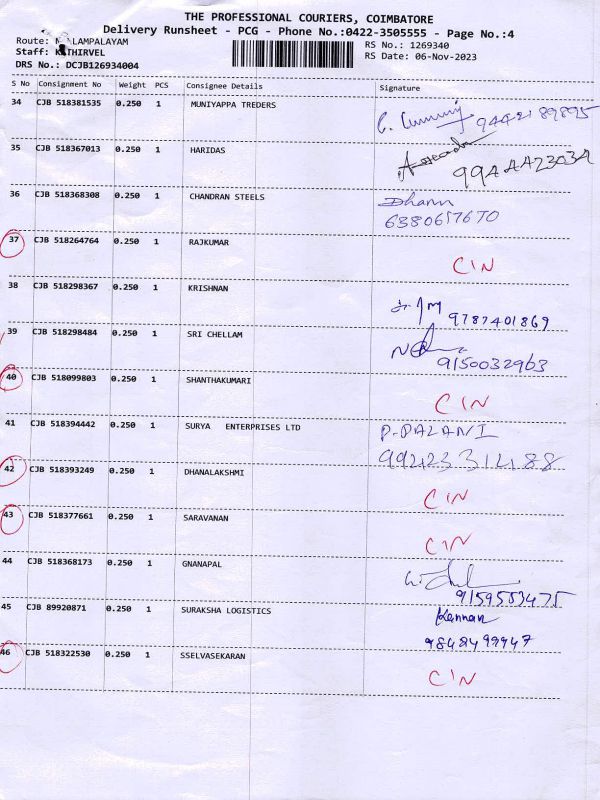 THE PROFESSIONAL COURIERS, COIMBATORE
Delivery Runsheet - PCG - Phone No.:0422-3505555 - Page No.:4
Route: LAMPALAYAM
Staff: KATHIRVEL
DRS No.: DCJB126934004
RS No.: 1269340
RS Date: 06-Nov-2023
S No Consignment No Weight PCS Consignee Details Signature
34 CJB 518381535 0.250 1 MUNIYAPPA TREDERS 9442189895
35 CJB 518367013 0.250 1 HARIDAS 9944423034
36 CJB 518368308 0.250 1 CHANDRAN STEELS Dhann
6380657670
37 CJB 518264764 0.250 1 RAJKUMAR CIN
38 CJB 518298367 0.250 1 KRISHNAN 9787401869
39 CJB 518298484 0.250 1 SRI CHELLAM 9150032963
40 CJB 518099803 0.250 1 SHANTHAKUMARI CIN
41 CJB 518394442 0.250 1 SURYA ENTERPRISES LTD P.PALANI
9942331488
42 CJB 518393249 0.250 1 DHANALAKSHMI CIN
43 CJB 518377661 0.250 1 SARAVANAN CIN
44 CJB 518368173 0.250 1 GNANAPAL 9159553475
45 CJB 89920871 0.250 1 SURAKSHA LOGISTICS Kannan
9848499947
46 CJB 518322530 0.250 1 SSELVASEKARAN CIN